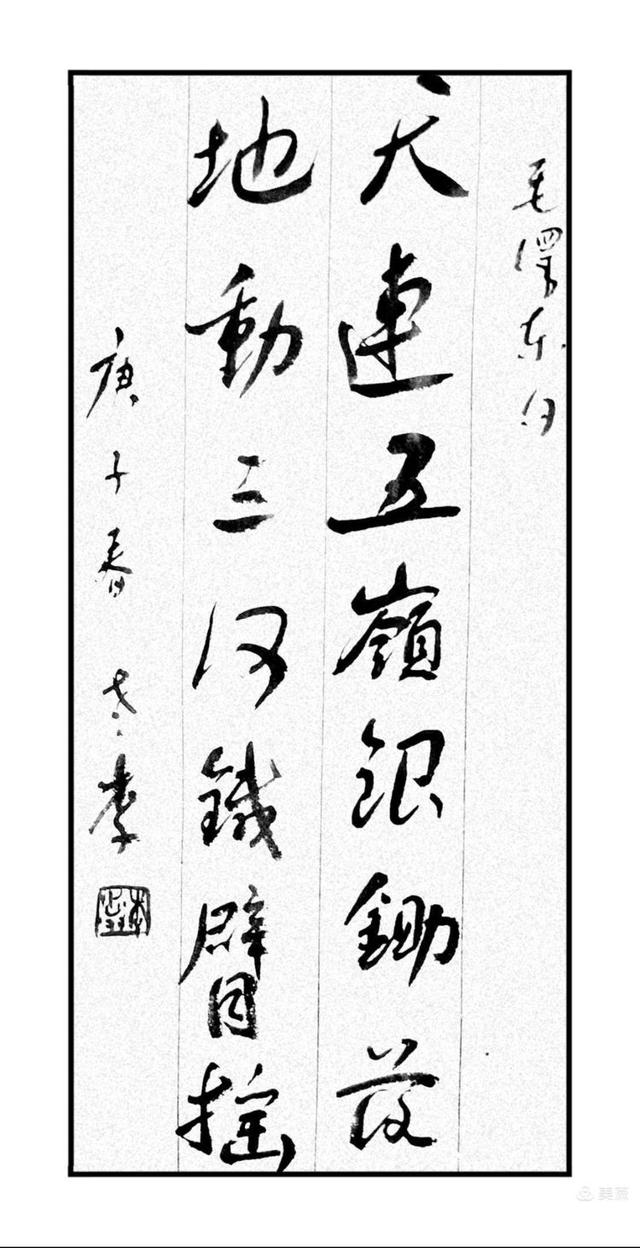 毛澤东句
天連五嶺銀鋤落
地動三河鐵臂摇
庚子春 李
美篇